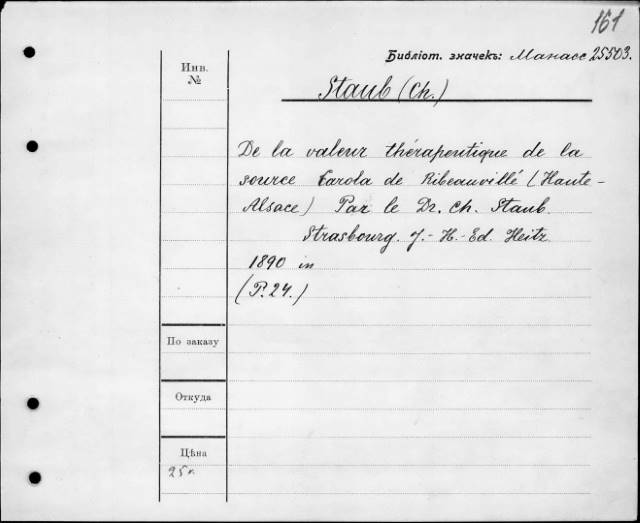 161
Библіот. значекъ: Манасс 25503.
Инв.
№
Staub (Ch.)
De la valeur thérapeutique de la
source Carola de Ribeauvillé (Haute-
Alsace) Par le Dr. Ch. Staub.
Strasbourg. J.-H.-Ed. Heitz.
1890 in
(P. 24.)
По заказу
Откуда
Цѣна
25к.